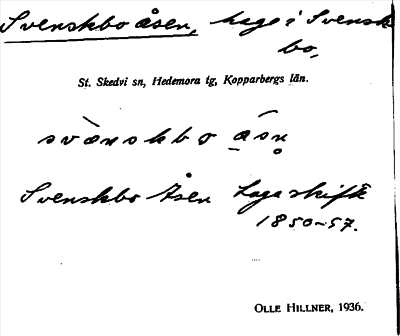 Svenskbo åsen, hage i Svensk
bo,
St. Skedvi sn, Hedemora tg, Kopparbergs län.
svànskbo ásn̥
Svenskbo Åsen Laga skifte
1850-57.
OLLE HILLNER, 1936.